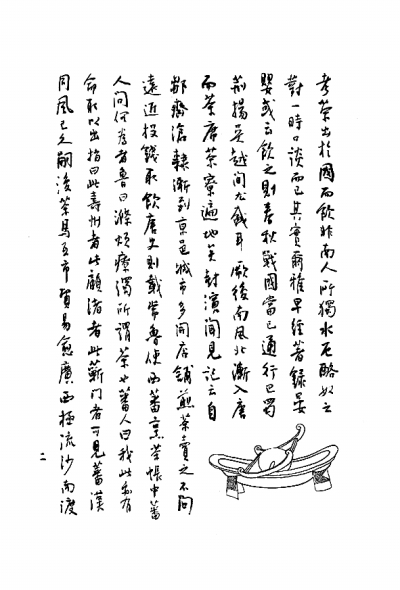 考茶出於國而飲非南人所獨水厄酪奴之
對一時口談而已其實爾雅早經著錄晏
嬰或云飲之則春秋戰國當已通行巴蜀
荊揚吳越間九錢耳厥後南風北漸入唐
而茶店茶寮遍地矣封演聞見記云自
鄒齊滄隸漸到京邑城市多開店舖煎茶賣之不問
遠近投錢取飲唐史則載常魯使西蕃烹茶帳中蕃
人問何為者魯曰滌煩療渴所謂茶也蕃人曰我此亦有
命取以出指曰此壽州者此顧渚者此蘄門者可見蕃漢
同風已久嗣後茶馬互市貿易愈廣西極流沙南渡
二